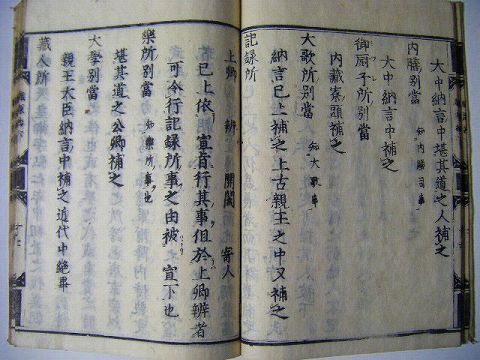 大中納言中堪其道之人補之
内膳別當 知内膳司事
大中納言中補之
御厨子所別當
内藏寮頭補之
大歌所別當 知大歌事
納言已上補之上古親王之中又補之
記録所
上卿 辨 開闔 寄人
已上依 宣旨行其事但於上卿辨者
可令行記録所事之由被 宣下也
樂所別當 知樂所事也
堪其道之公卿補之
大學別當
親王大臣納言中補之近代中絶畢
藏人所